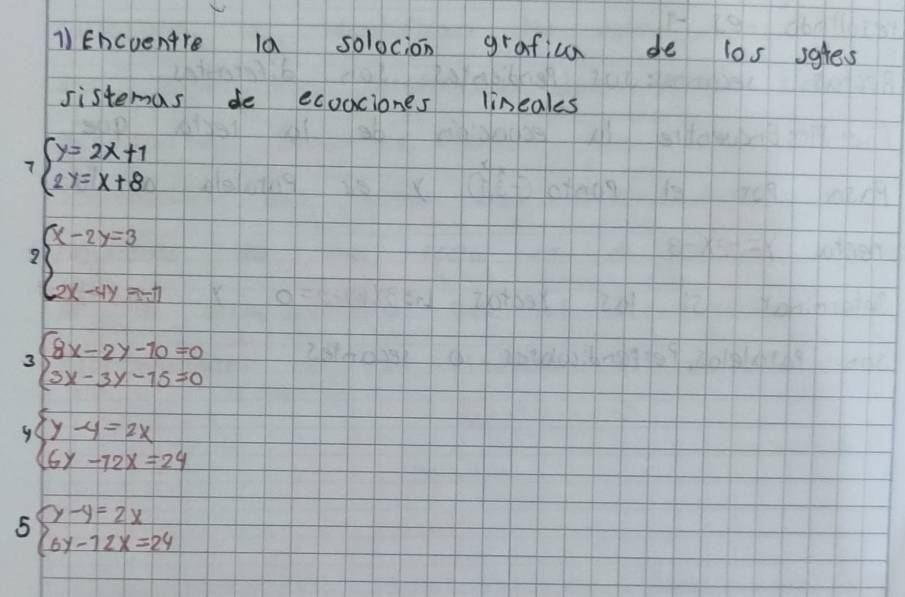 1) Encuentre la solocion grafica de los sgtes
sistemas de ecuaciones lineales
1 { y = 2x + 1
2y = x + 8
2 { x - 2y = 3
2x - 4y = -1
3 { 8x - 2y - 10 = 0
3x - 3y - 15 = 0
4 { y - 4 = 2x
6y - 12x = 24
5 { y - 4 = 2x
6y - 12x = 24